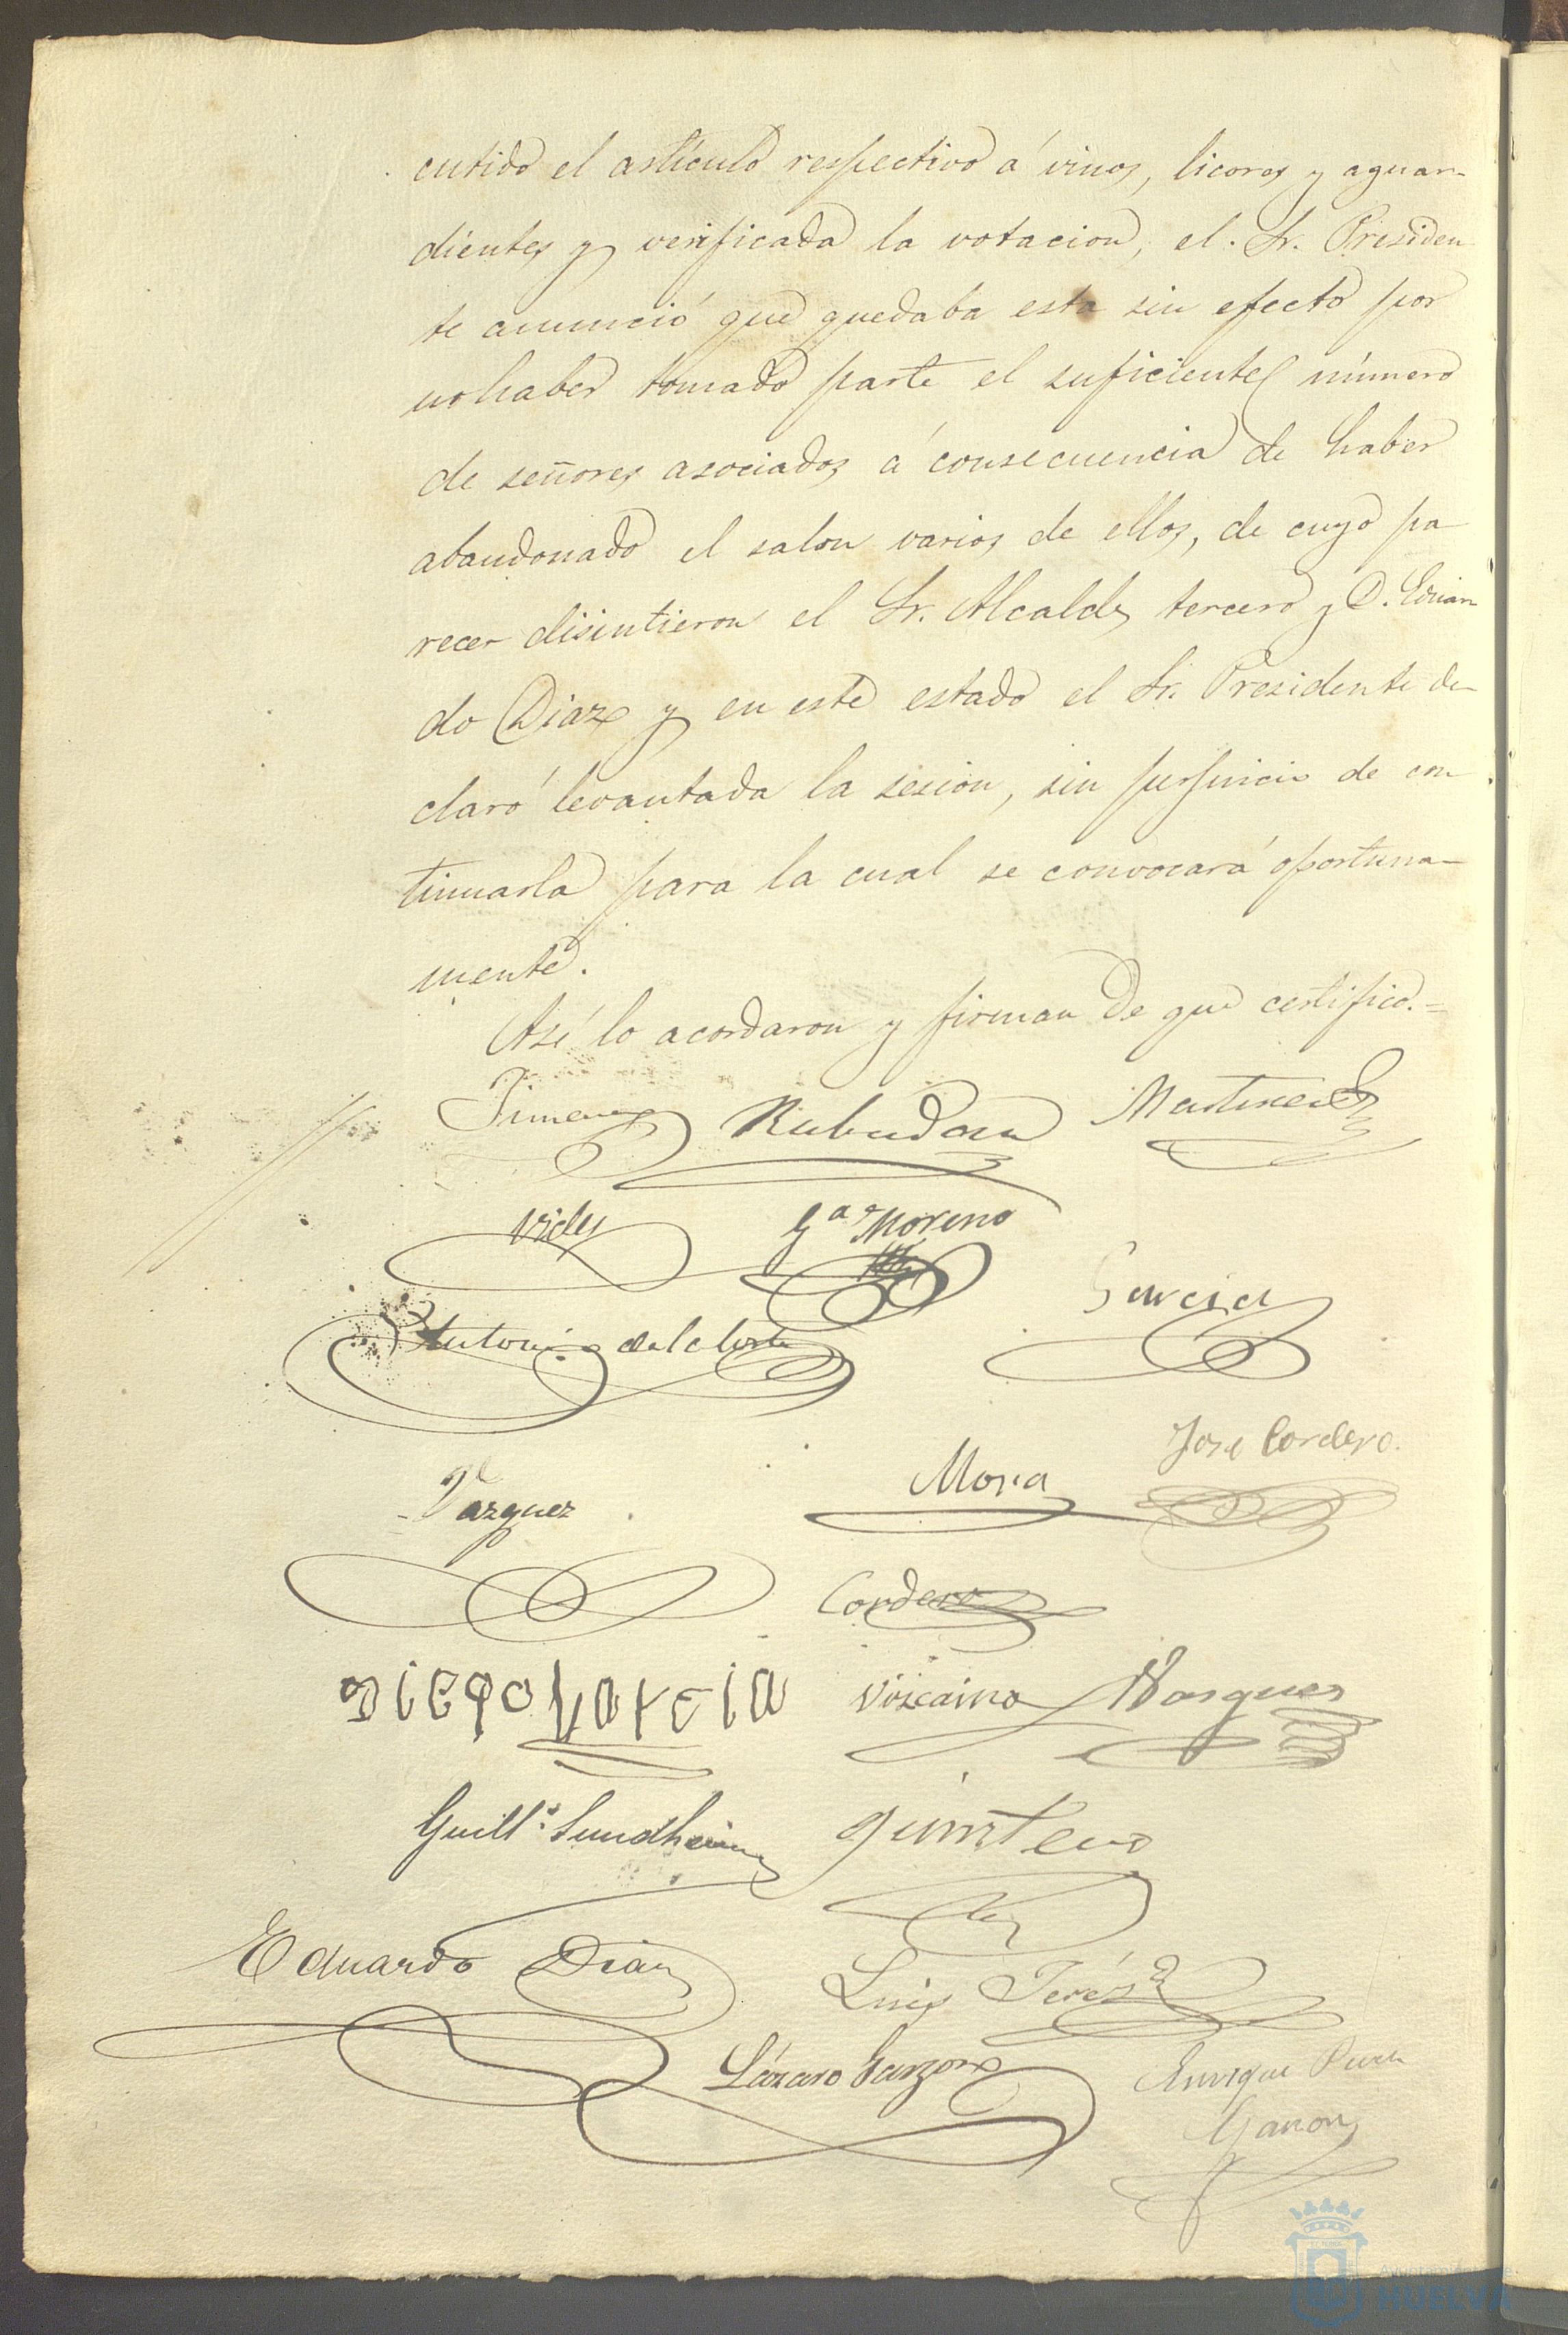 cutido el artículo respectivo á vinos, licores y aguar-
dientes y verificada la votacion, el Sr. Presiden
te anunció que quedaba esta sin efecto por
no haber tomado parte el suficiente número
de señores asociados á consecuencia de haber
abandonado el salon varios de ellos, de cuyo pa
recer disintieron el Sr. Alcalde tercero y D. Eduar
do Diaz y en este estado el Sr. Presidente de-
claró levantada la sesion, sin perjuicio de con
tinuarla para la cual se convocará oportuna-
mente.
Asi lo acordaron y firman de que certifico.=
Jimenez Martinez
Vides Gª Moreno
Garcia
Antonio de la Corte
Jose Cordero.
Vazquez Mora
Cordero
DIEGO GARCIA Viscaino Vasquez
Guillº Sundheim Quintero
Eduardo Diaz Luis Jeréz
Lázaro Garzon Enrique
Ayuntamiento de
HUELVA